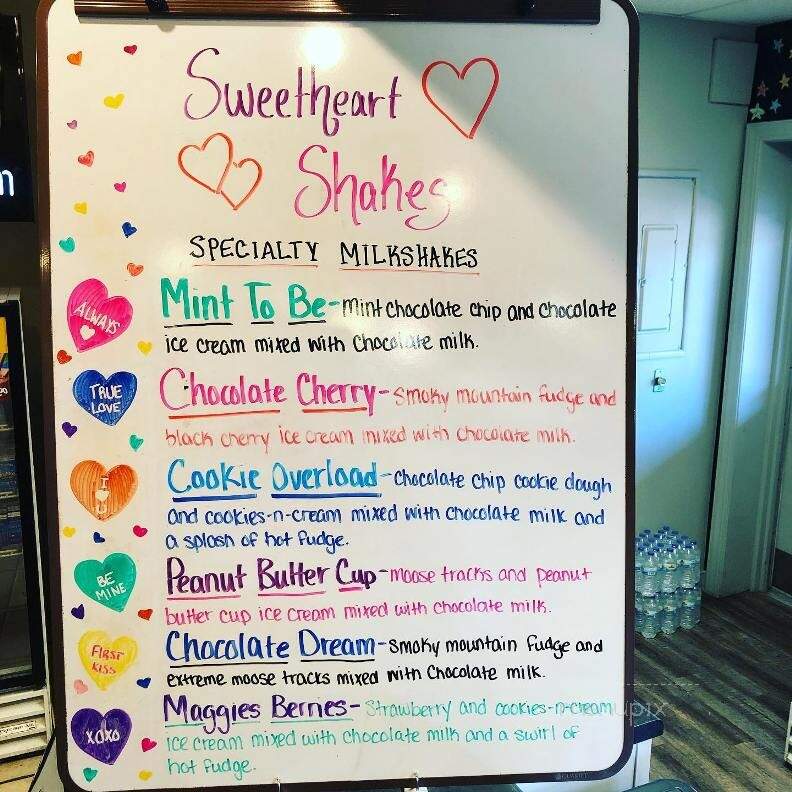 Sweetheart
Shakes
SPECIALTY MILKSHAKES
ALWAYS
Mint To Be-mint chocolate chip and chocolate
ice cream mixed with chocolate milk.
TRUE
LOVE
Chocolate Cherry-smoky mountain fudge and
black cherry ice cream mixed with chocolate milk.
I
U
Cookie Overload-chocolate chip cookie dough
and cookies-n-cream mixed with chocolate milk and
a splash of hot fudge.
BE
MINE
Peanut Butter Cup-moose tracks and peanut
butter cup ice cream mixed with chocolate milk.
FIRST
KISS
Chocolate Dream-smoky mountain fudge and
extreme moose tracks mixed with chocolate milk.
XOXO
Maggies Berries-Strawberry and cookies-n-cream
ice cream mixed with chocolate milk and a swirl of
hot fudge.